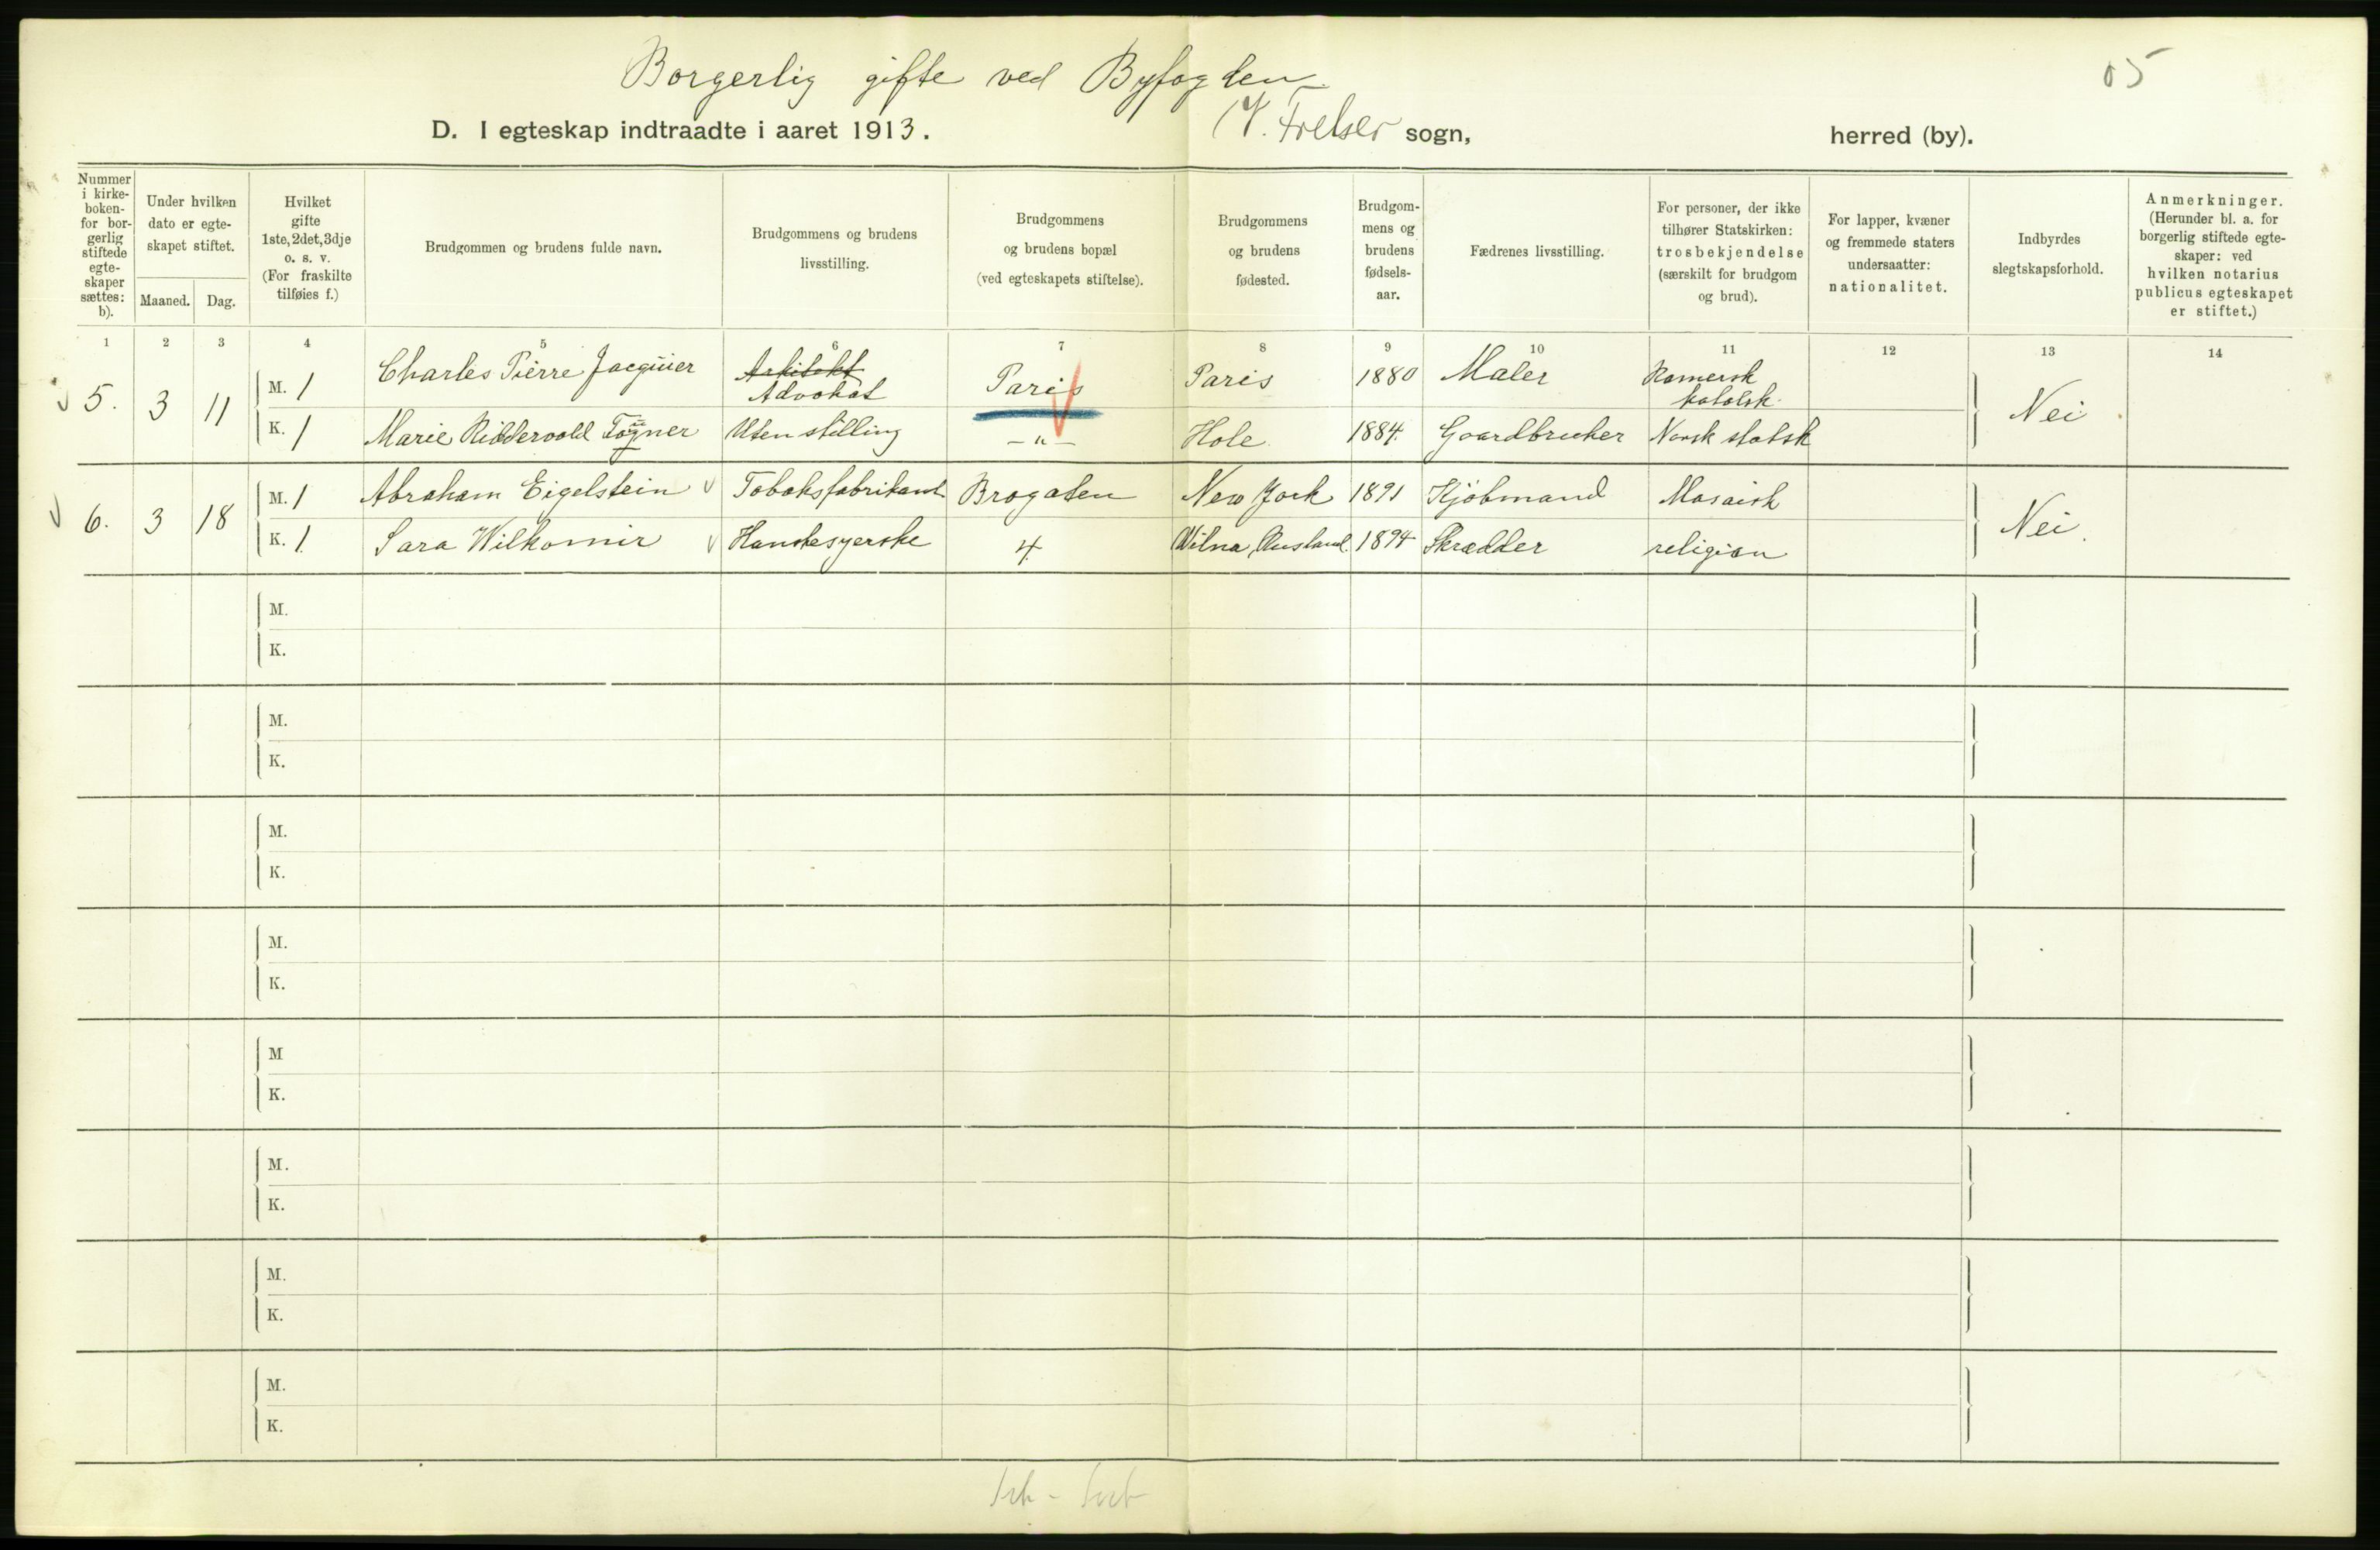 Borgerlig gifte ved Byfogden
05
D. I egteskap indtraadte i aaret 1913.
V. Frelser sogn,
herred (by).
Nummer
i kirke-
boken-
for bor-
gerlig
stiftede
egte-
skaper
sættes:
b).
Under hvilken
dato er egte-
skapet stiftet.
Maaned. Dag.
Hvilket
gifte
1ste, 2det, 3dje
o. s. v.
(For fraskilte
tilføies f.)
Brudgommen og brudens fulde navn.
Brudgommens og brudens
livsstilling.
Brudgommens
og brudens bopæl
(ved egteskapets stiftelse).
Brudgommens
og brudens
fødested.
Brudgom-
mens og
brudens
fødsels-
aar.
Fædrenes livsstilling.
For personer, der ikke
tilhører Statskirken:
trosbekjendelse
(særskilt for brudgom
og brud).
For lapper, kvæner
og fremmede staters
undersaatter:
nationalitet.
Indbyrdes
slegtskapsforhold.
Anmerkninger.
(Herunder bl. a. for
borgerlig stiftede egte-
skaper: ved
hvilken notarius
publicus egteskapet
er stiftet.)
1 2 3 4 5 6 7 8 9 10 11 12 13 14
5. 3 11
M. 1 Charles Pierre Jacquier Arkitekt
Advokat Paris Paris 1880 Maler Romersk
katolsk.
K. 1 Marie Riddervold Togner Uten stilling -"- Hole. 1884. Gaardbruker Norsk statsk
Nei
6. 3 18
M. 1 Abraham Eigelstein Tobaksfabrikant Brogaten New York 1891 Kjøbmand Mosaisk
K. 1. Sara Wilkomir Hanskesyerske 4. Wilna Rusland. 1894 Skrædder religion
Nei.
M.
K.
M.
K.
M.
K.
M.
K.
M
K.
M.
K.
M.
K.
M.
K.